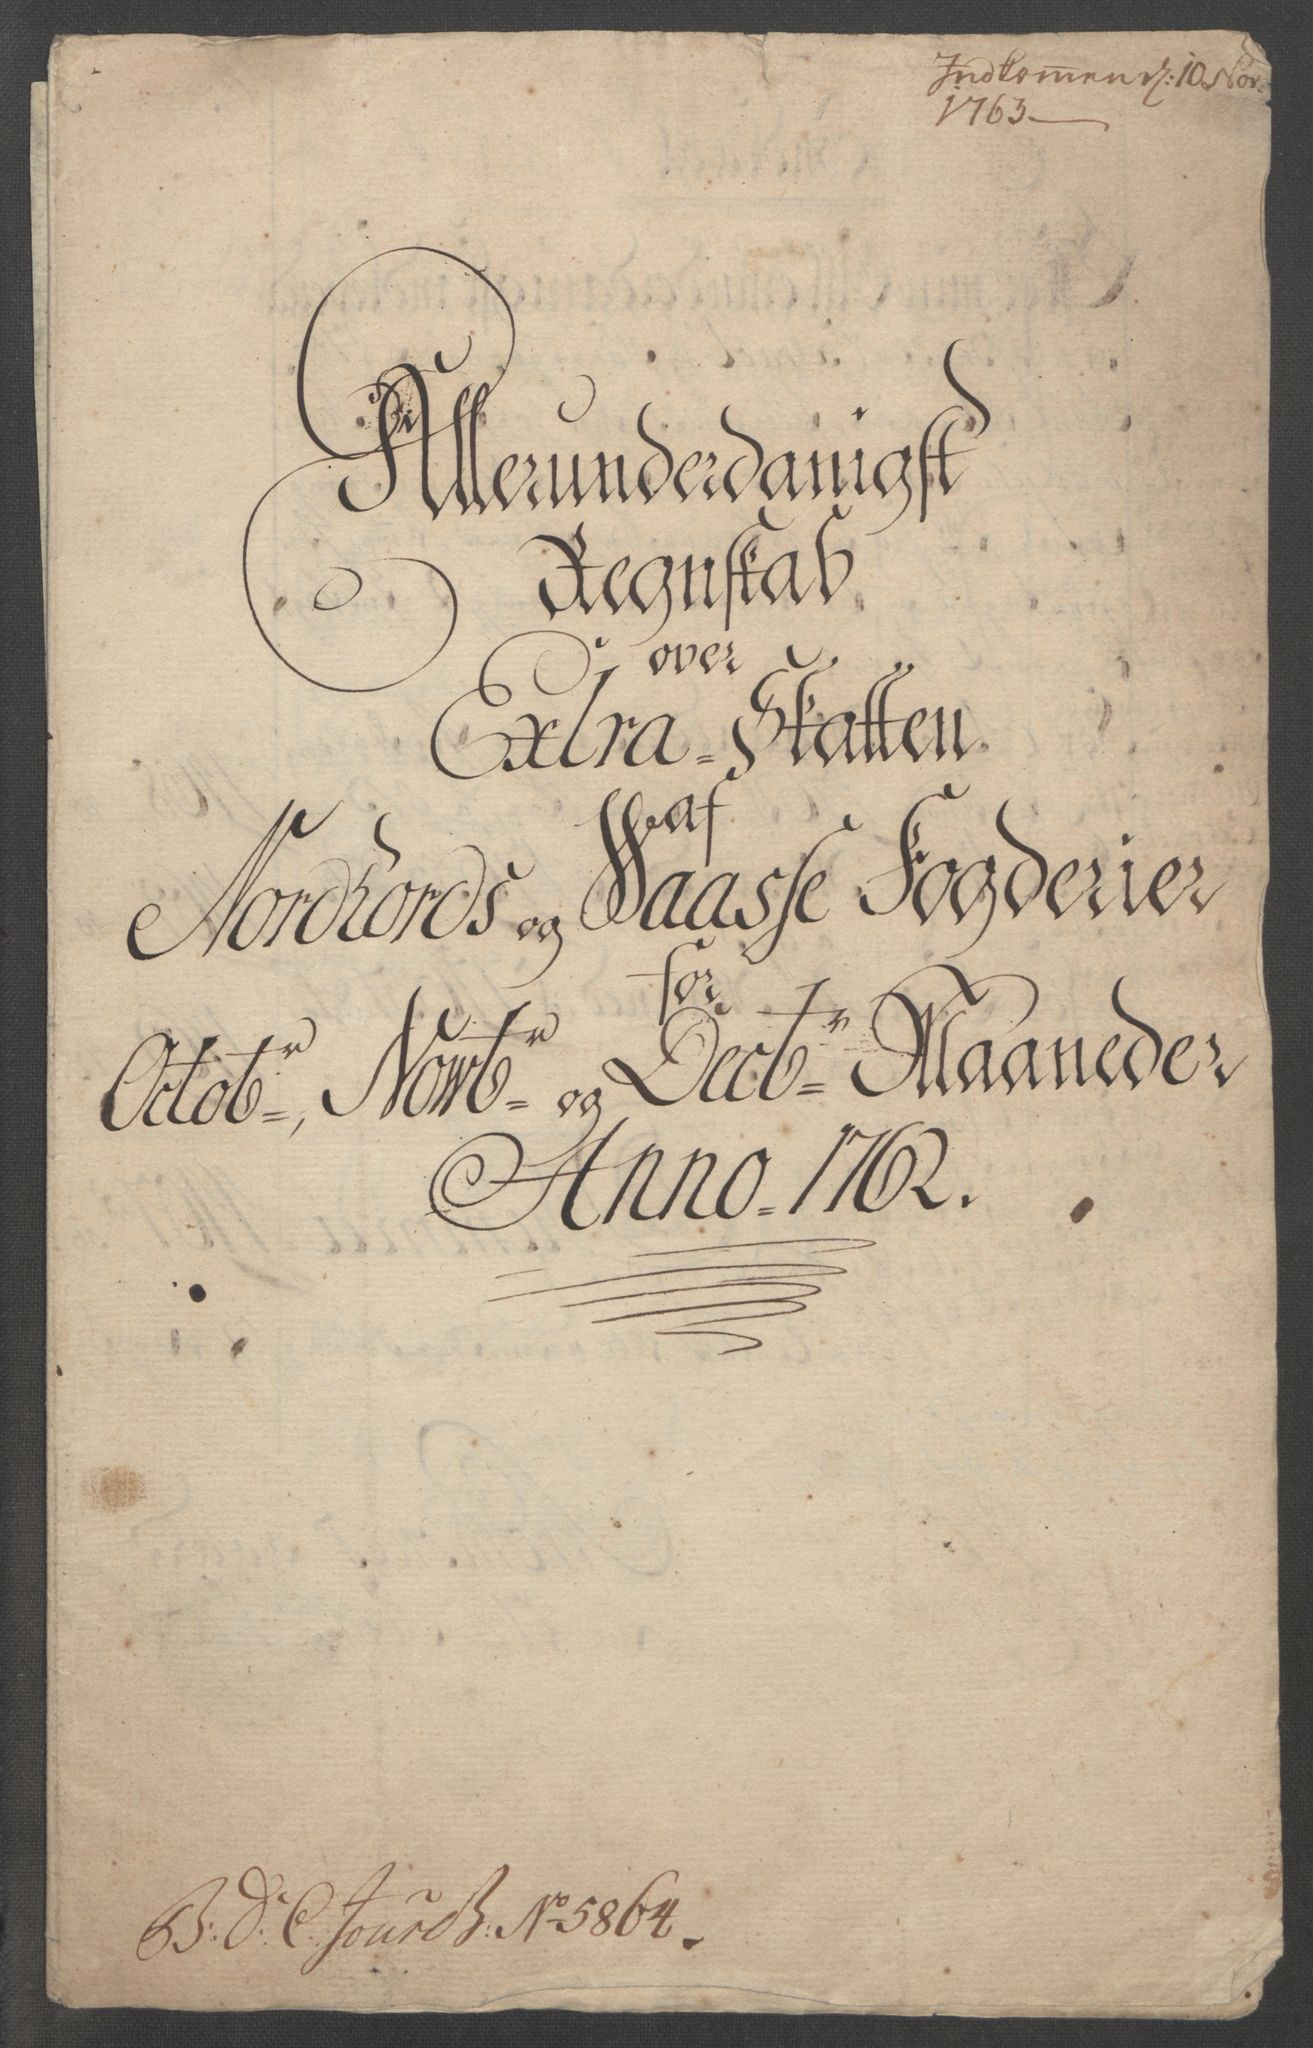 Indkommen d: 10 Nov:
1763
Allerunderdanigst
Regnskab
over
Extra-Skatten
af
Nordhords og Waasse Fogderier
for
Octobr, Novbr og Decbr Maaneder
Anno 1762.
B: D: C: Jour B: No 5864.